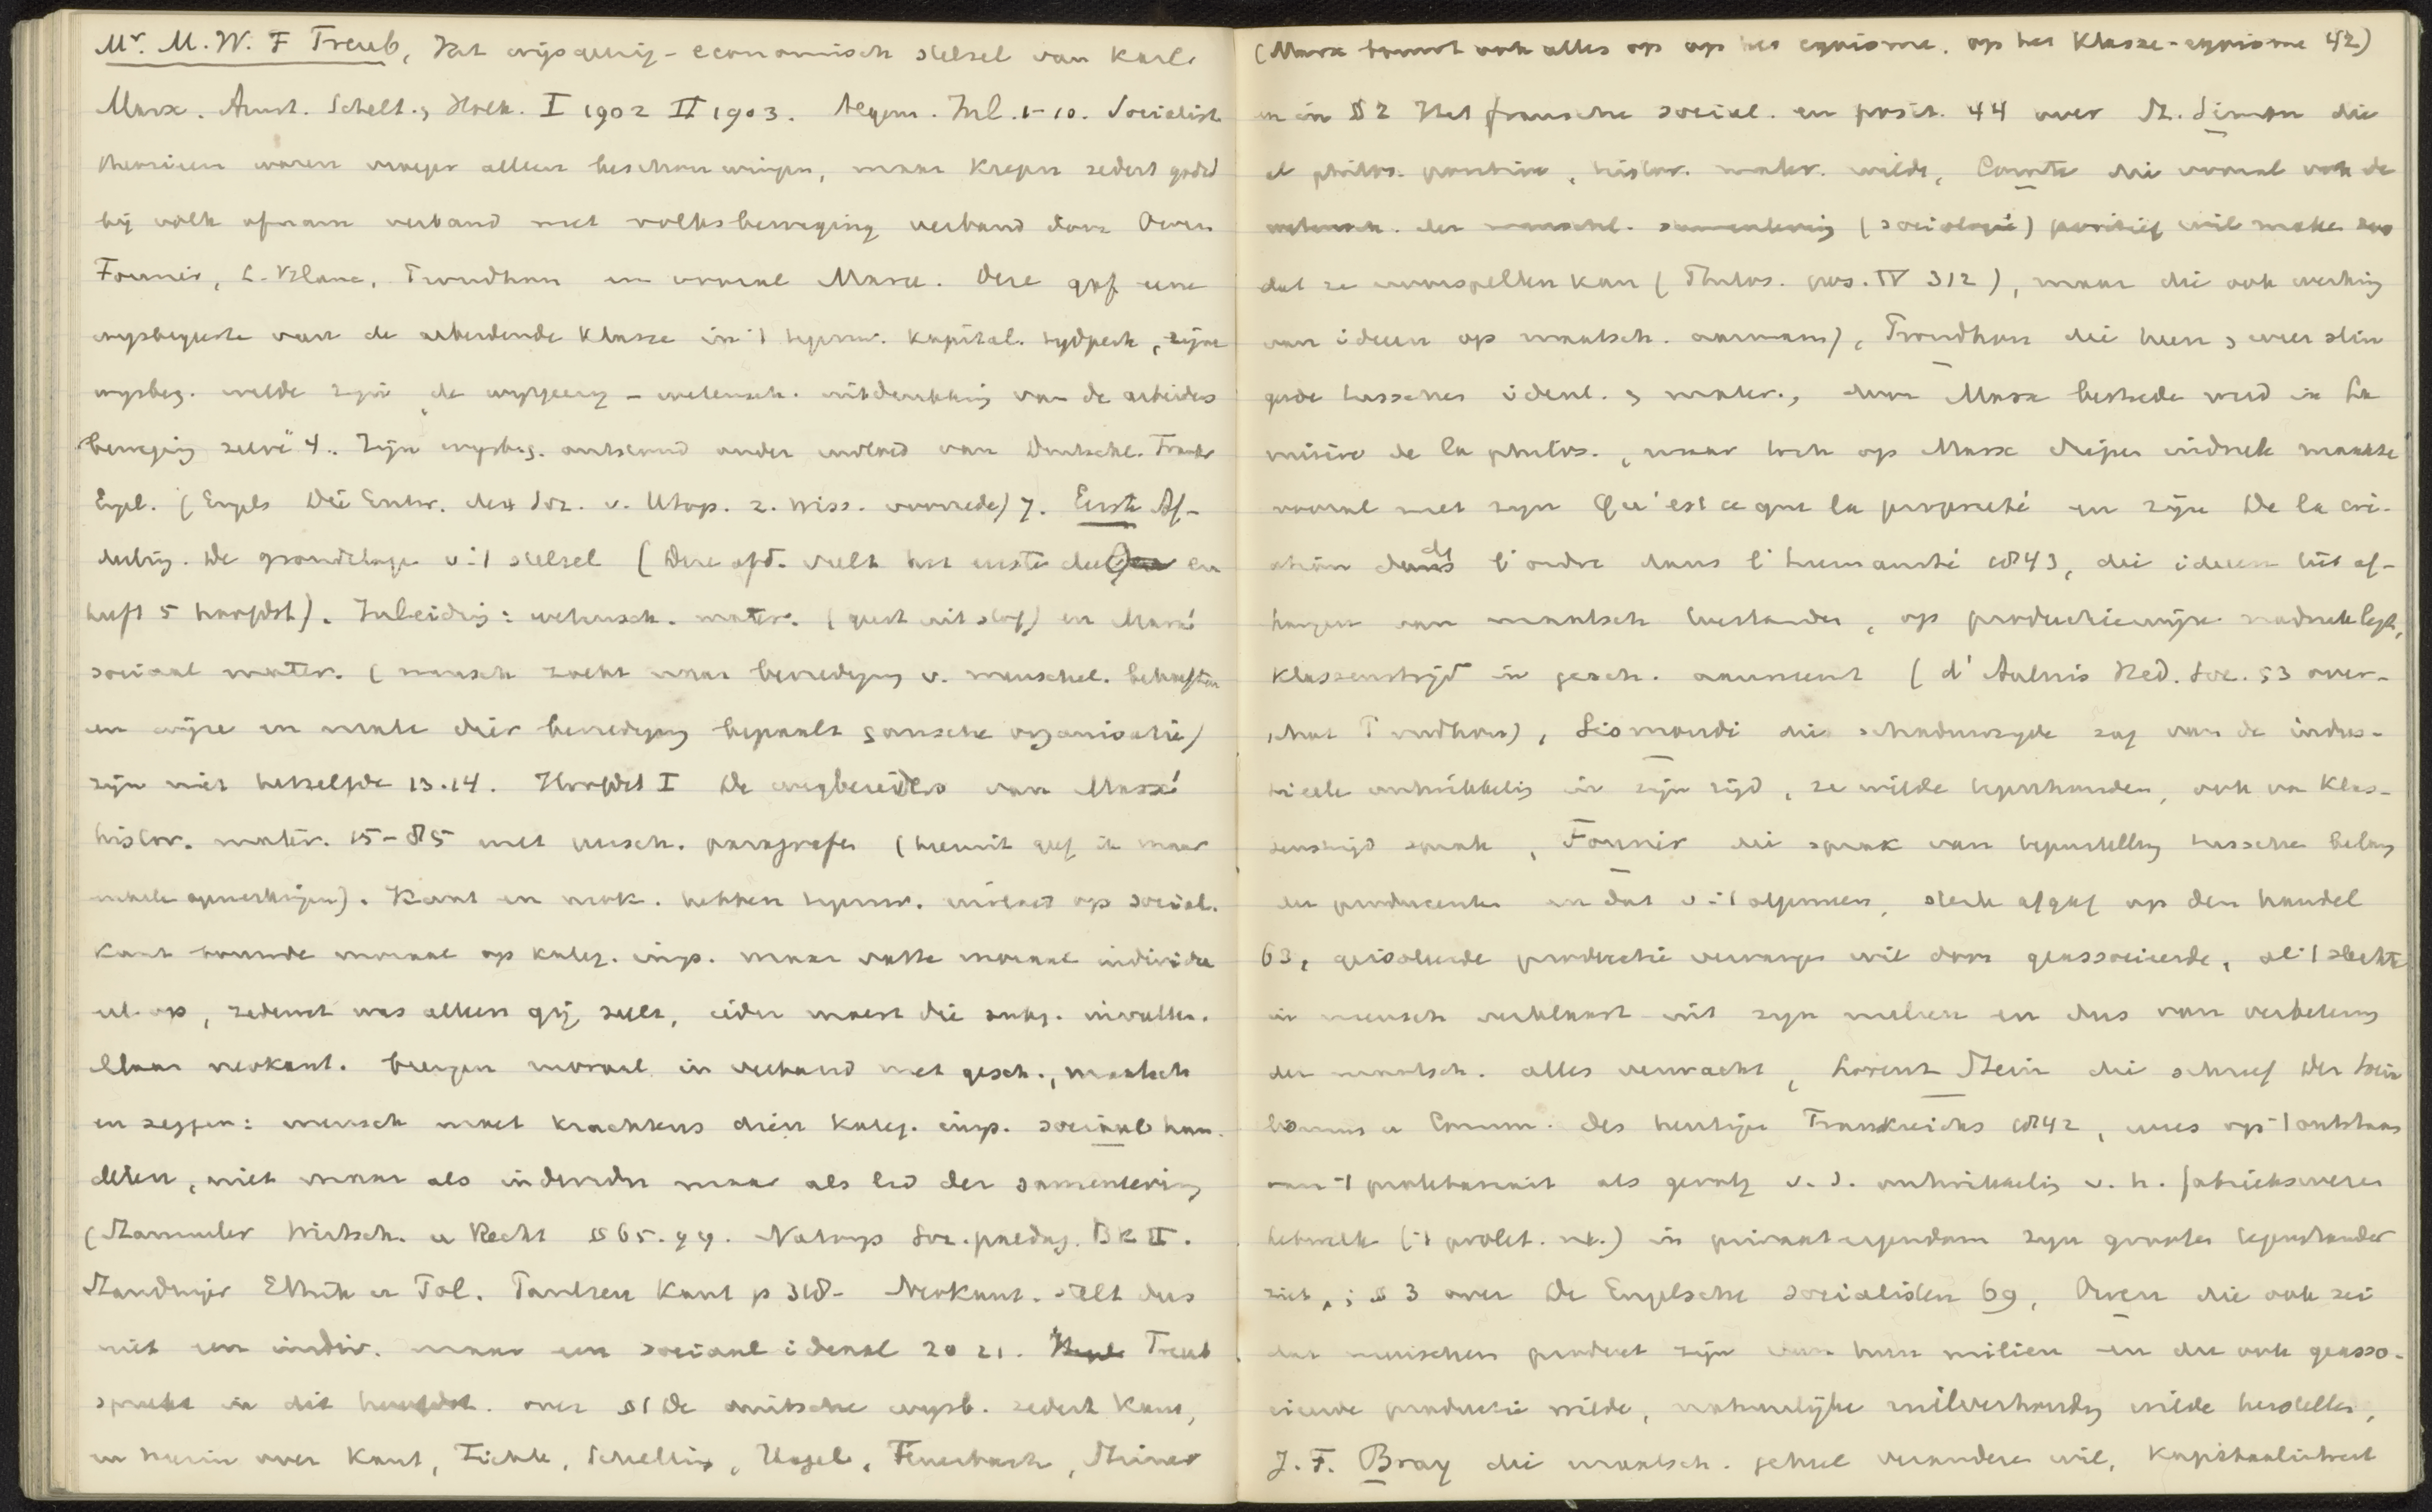 Mr. M. W. F Treub, Het wijsgeerig-economisch stelsel van Karl
Marx. Amst. Schelt. & Holk. I 1902 II 1903. Algem. Inl. 1-10. Socialist
theorieen waren vroeger alleen beschouwingen, maar kregen sedert godsd
bij volk afnam verband met volksbeweging verband door Owen
Fourier, L. Blanc, Proudhon en vooral Marx. Deze gaf eene
wijsbegeerte van de arbeidende klasse in 't tegenw. kapital. tijdperk, zijne
wijsbeg. wilde zijn „de wijsgeerig-wetensch. uitdrukking van de arbeiders
beweging zelve" 4. Zijn wijsbeg. ontstond onder invloed van Duitschl. Frankr
Engl. (Engels Die Entw. der Soz. v. Utop. z. Wiss. voorrede) 7. Eerste Af-
deeling. De grondslagen v. 't stelsel (Deze afd. vult het eerste deel en
heeft 5 hoofdst). Inleiding: wetensch. mater. (geest uit stof) en Marx'
sociaal mater. (mensch zoekt naar bevrediging v. menschel. behoeften
en wijze en mate dier bevrediging bepaalt gansche organisatie)
zijn niet hetzelfde 13.14. Hoofdst I De wegbereiders van Marx'
histor. mater. 15-85 met versch. paragrafen (hieruit geef ik maar
enkele opmerkingen). Kant en neok. hebben tegenw. invloed op social.
Kant bouwde moraal op kateg. imp. maar vatte moraal individu
eel op, zedewet was alleen gij zult, ieder moest die zelfst. invullen.
Maar neokant. brengen moraal in verband met gesch., maatsch
en zeggen: mensch moet krachtens dien kateg. imp. sociaal han-
delen, niet maar als individu maar als lid der samenleving
(Stammler Wirtsch. u Recht § 65. 99. Natorp Soz. paedag. Bk II.
Staudinger Ethik u Pol. Paulsen Kant p 318- Neokant. stelt dus
niet een indiv. maar een sociaal ideaal 20 21. Treub
spreekt in dit hoofdst. over § 1 De duitsche wijsb. sedert Kant,
en hierin over Kant, Fichte, Schelling, Hegel, Feuerbach, Stirner
(Marx bouwt ook alles op op het egoisme, op het Klasse-egoisme 42)
en in § 2 Het fransche social. en posit. 44 over St. Simon die
al philos. positive, histor. mater. wilde, Comte die vooral ook de
wetensch. der menschel. samenleving (sociologie) positief wil maken zoo
dat ze voorspellen kan (Philos. pos. IV 312), maar die ook werking
van ideeen op maatsch. aannam), Proudhon die heen & weer slin
gerde tusschen ideal. & mater., door Marx bestreden werd in La
misère de la philos., maar toch op Marx diepen indruk maakte
vooral met zijn Qu'est ce que la propriété en zijn De la cré-
ation de l'ordre dans l'humanité 1843, die ideeen liet af-
hangen van maatsch toestanden, op productiewijze nadruk legt,
Klassenstrijd in gesch. aanneemt (d'Aulnis Hed. Soc. 53 over-
schat Proudhon), Sismondi die schaduwzijde zag van de indus-
trieele ontwikkeling in zijn tijd, ze wilde tegenhouden, ook van Klas-
senstrijd sprak, Fourier die sprak van tegenstelling tusschen belang
der producenten en dat v. 't algemeen, sterk afgaf op den handel
63, geisoleerde productie vervangen wil door geassocieerde, al 't slechte
in mensch verklaart uit zijn milieu en dus van verbetering
der maatsch. alles verwacht, Lorenz Stein die schreef Der Socia
lismus u Comm. des heutigen Frankreichs 1842, wees op 't ontstaan
van 't proletariaat als gevolg v. d. ontwikkeling v. h. fabriekswezen
hetwelk ('t prolet. nl.) in privaat eigendom zijn grooten tegenstander
ziet,; § 3 over De Engelsche socialisten 69, Owen die ook zei
dat menschen product zijn van hun milieu en die ook geasso-
cieerde productie wilde, natuurlijke ruilverhouding wilde herstellen,
J. F. Bray die maatsch. geheel veranderen wil, Kapitaalinhoud